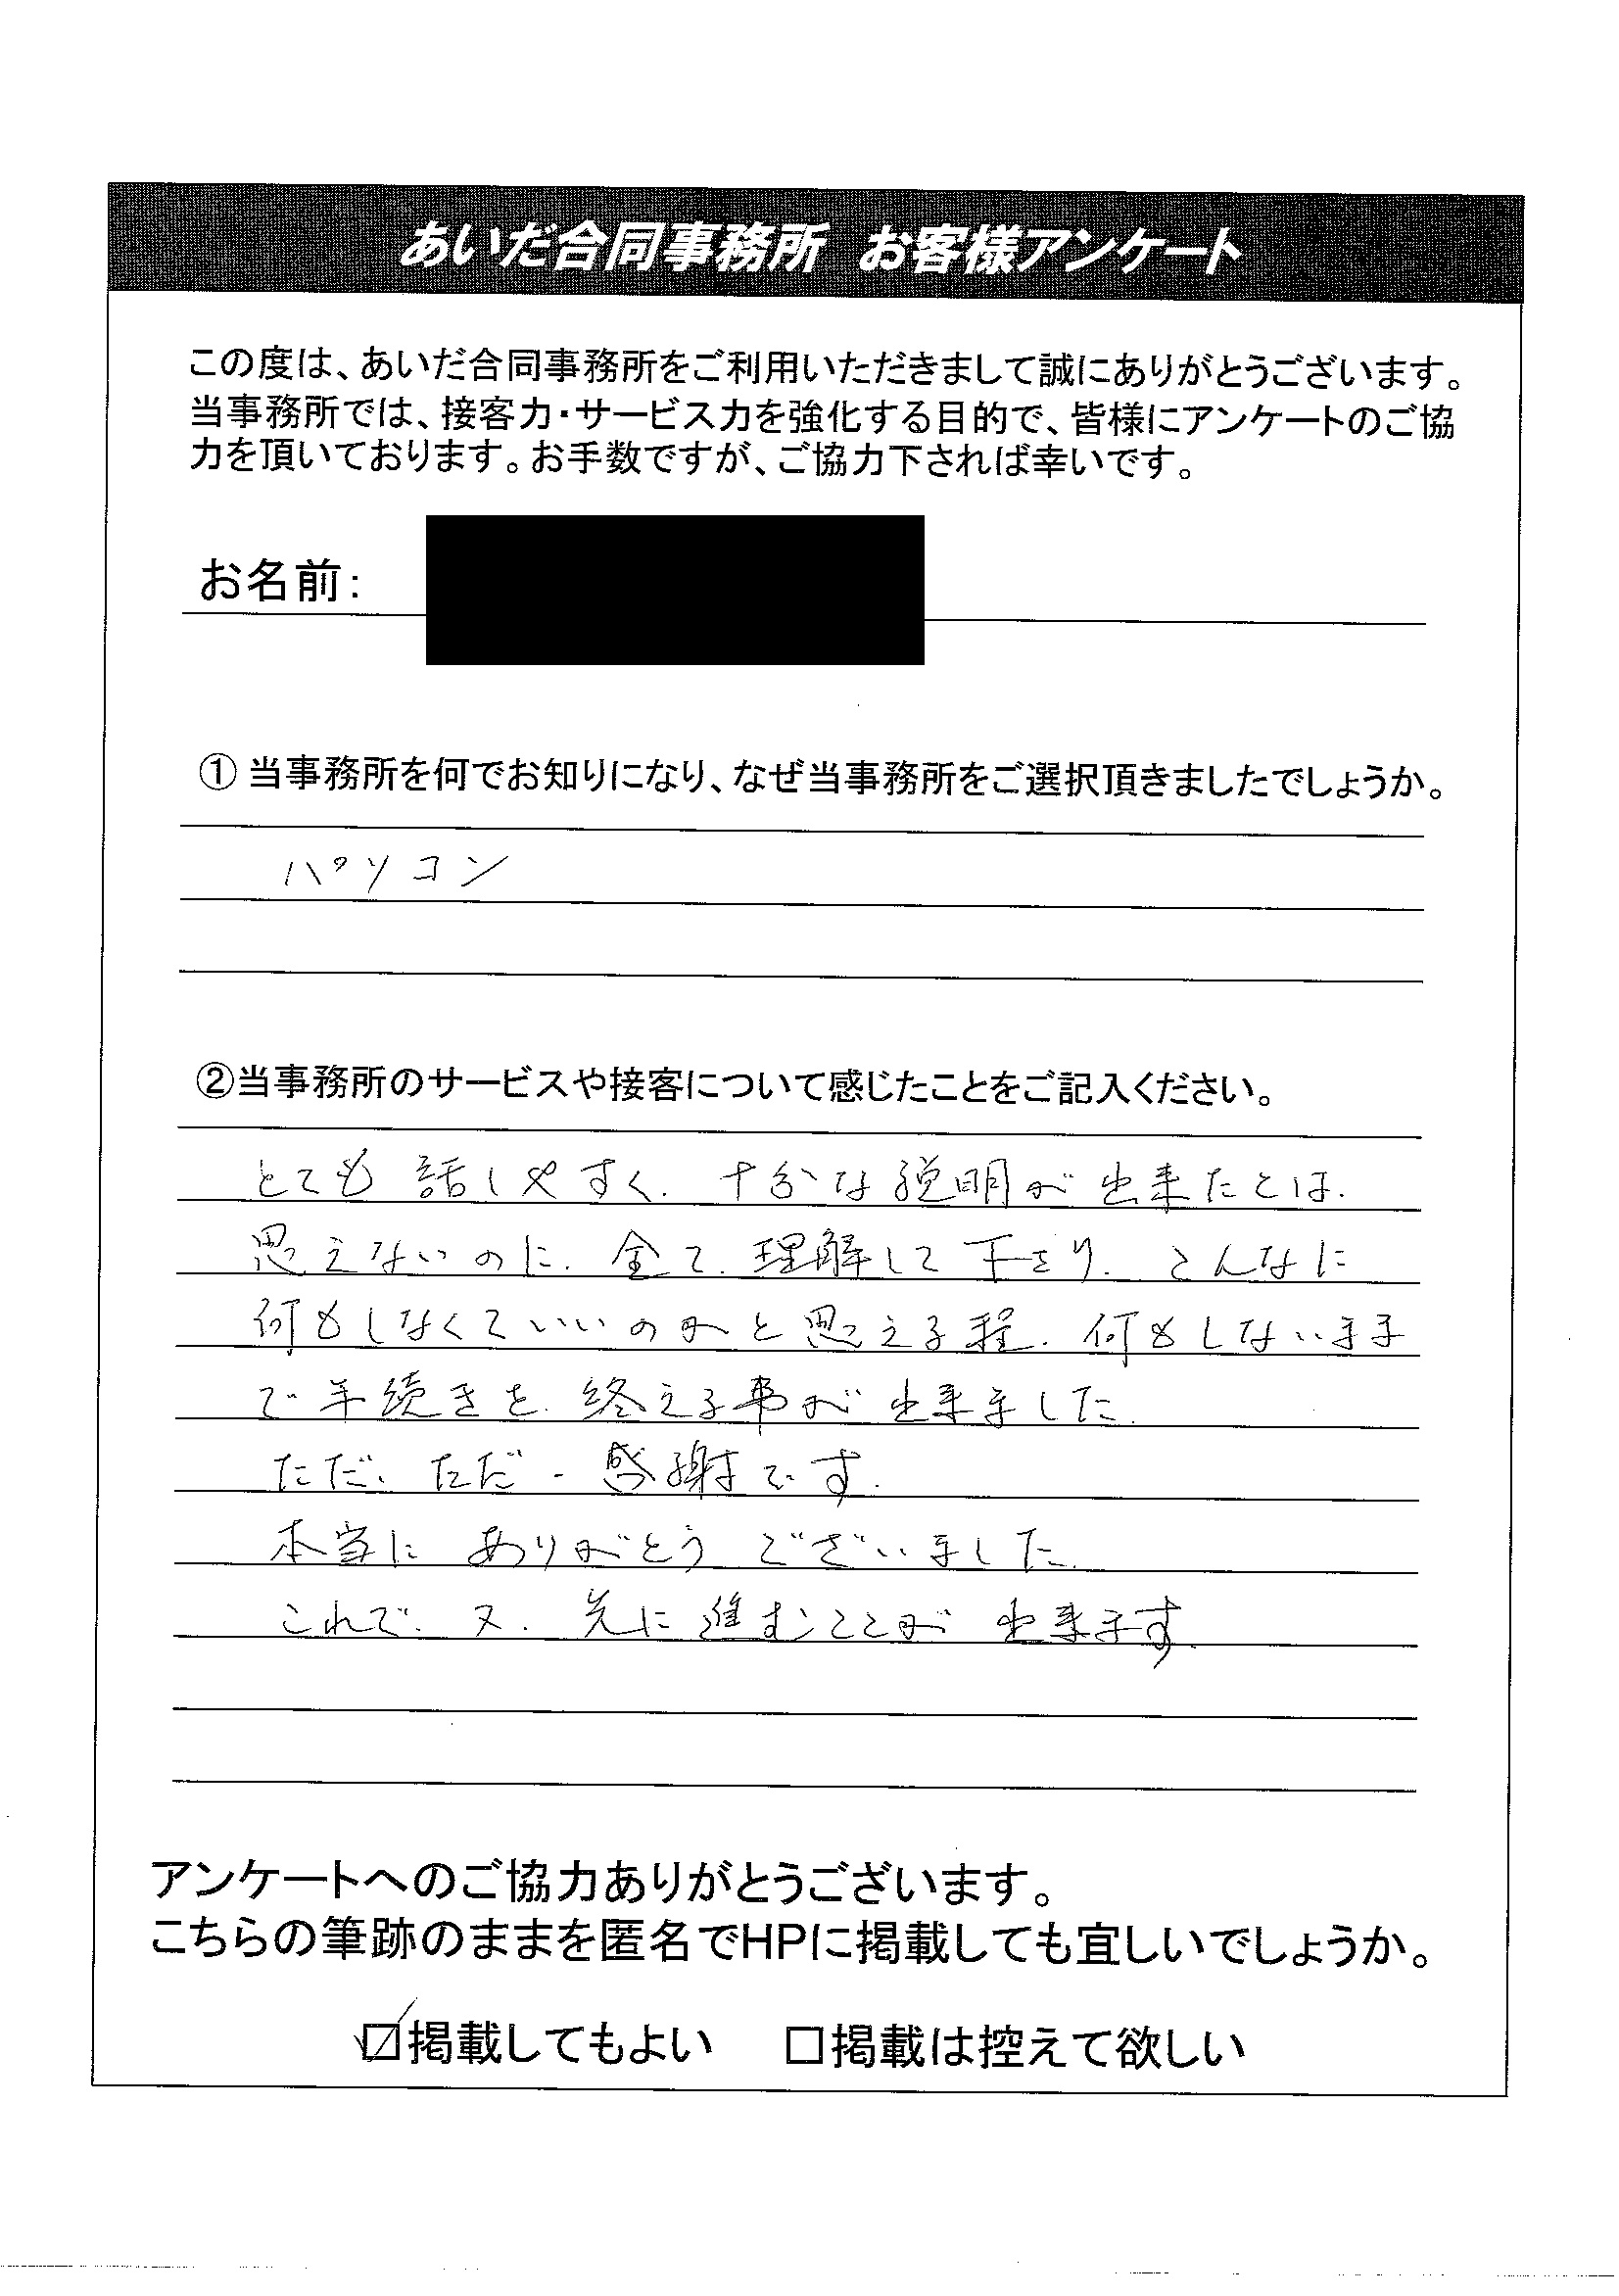 あいだ合同事務所 お客様アンケート
この度は、あいだ合同事務所をご利用いただきまして誠にありがとうございます。
当事務所では、接客力・サービス力を強化する目的で、皆様にアンケートのご協
力を頂いております。お手数ですが、ご協力下されば幸いです。
お名前:
①当事務所を何でお知りになり、なぜ当事務所をご選択頂きましたでしょうか。
パソコン
②当事務所のサービスや接客について感じたことをご記入ください。
とても話しやすく、十分な説明が出来たとは、
思えないのに、全て、理解して下さり、こんなに
何もしなくていいのかと思える程、何もしないまま
で手続きを、終える事が出来ました。
ただ、ただ、感謝です。
本当に ありがとう ございました。
これで、又、先に進むことが 出来ます。
アンケートへのご協力ありがとうございます。
こちらの筆跡のままを匿名でHPに掲載しても宜しいでしょうか。
☑掲載してもよい □掲載は控えて欲しい